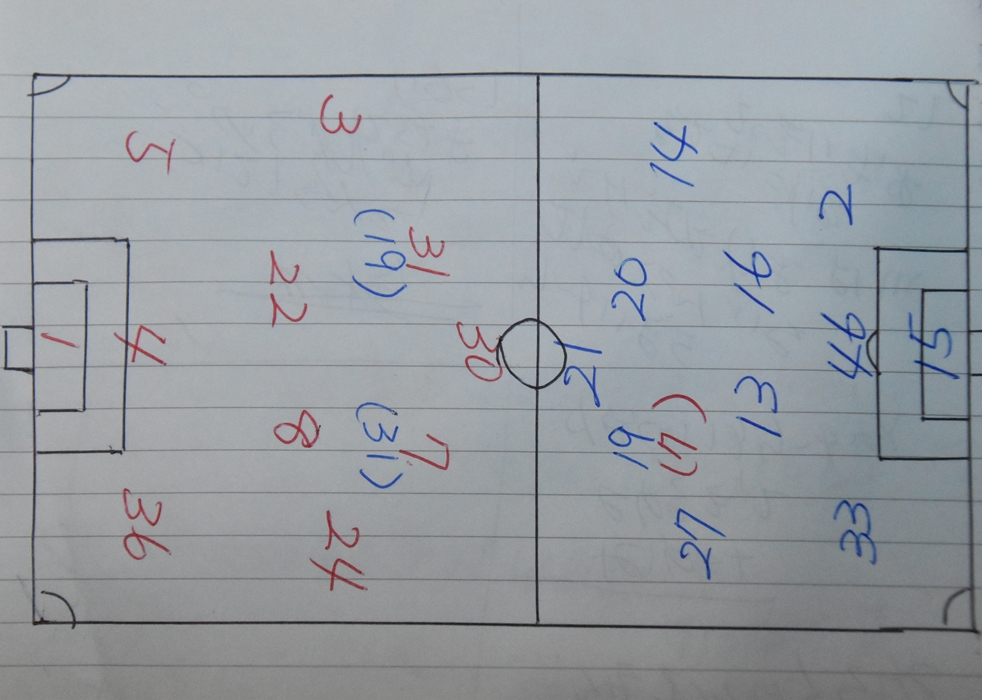 3
5
14
2
31
(19)
22
20
16
1
4
30
21
46
15
8
7
(31)
19
13
36
24
27
33